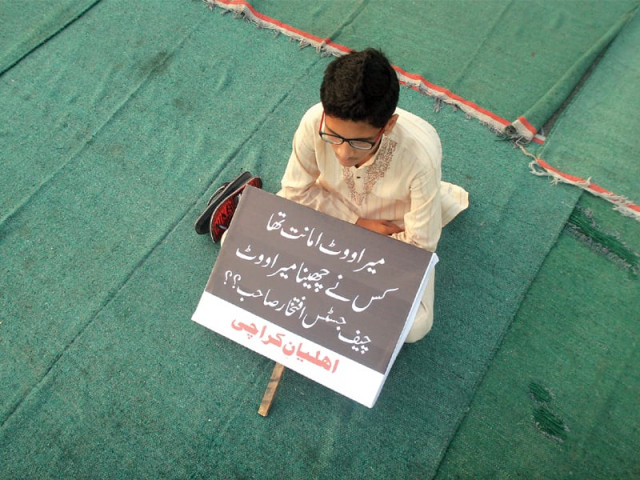 میرا ووٹ امانت تھا
کس نے چھینا میرا ووٹ
چیف جسٹس افتخار صاحب؟؟
اھلیان کراچی